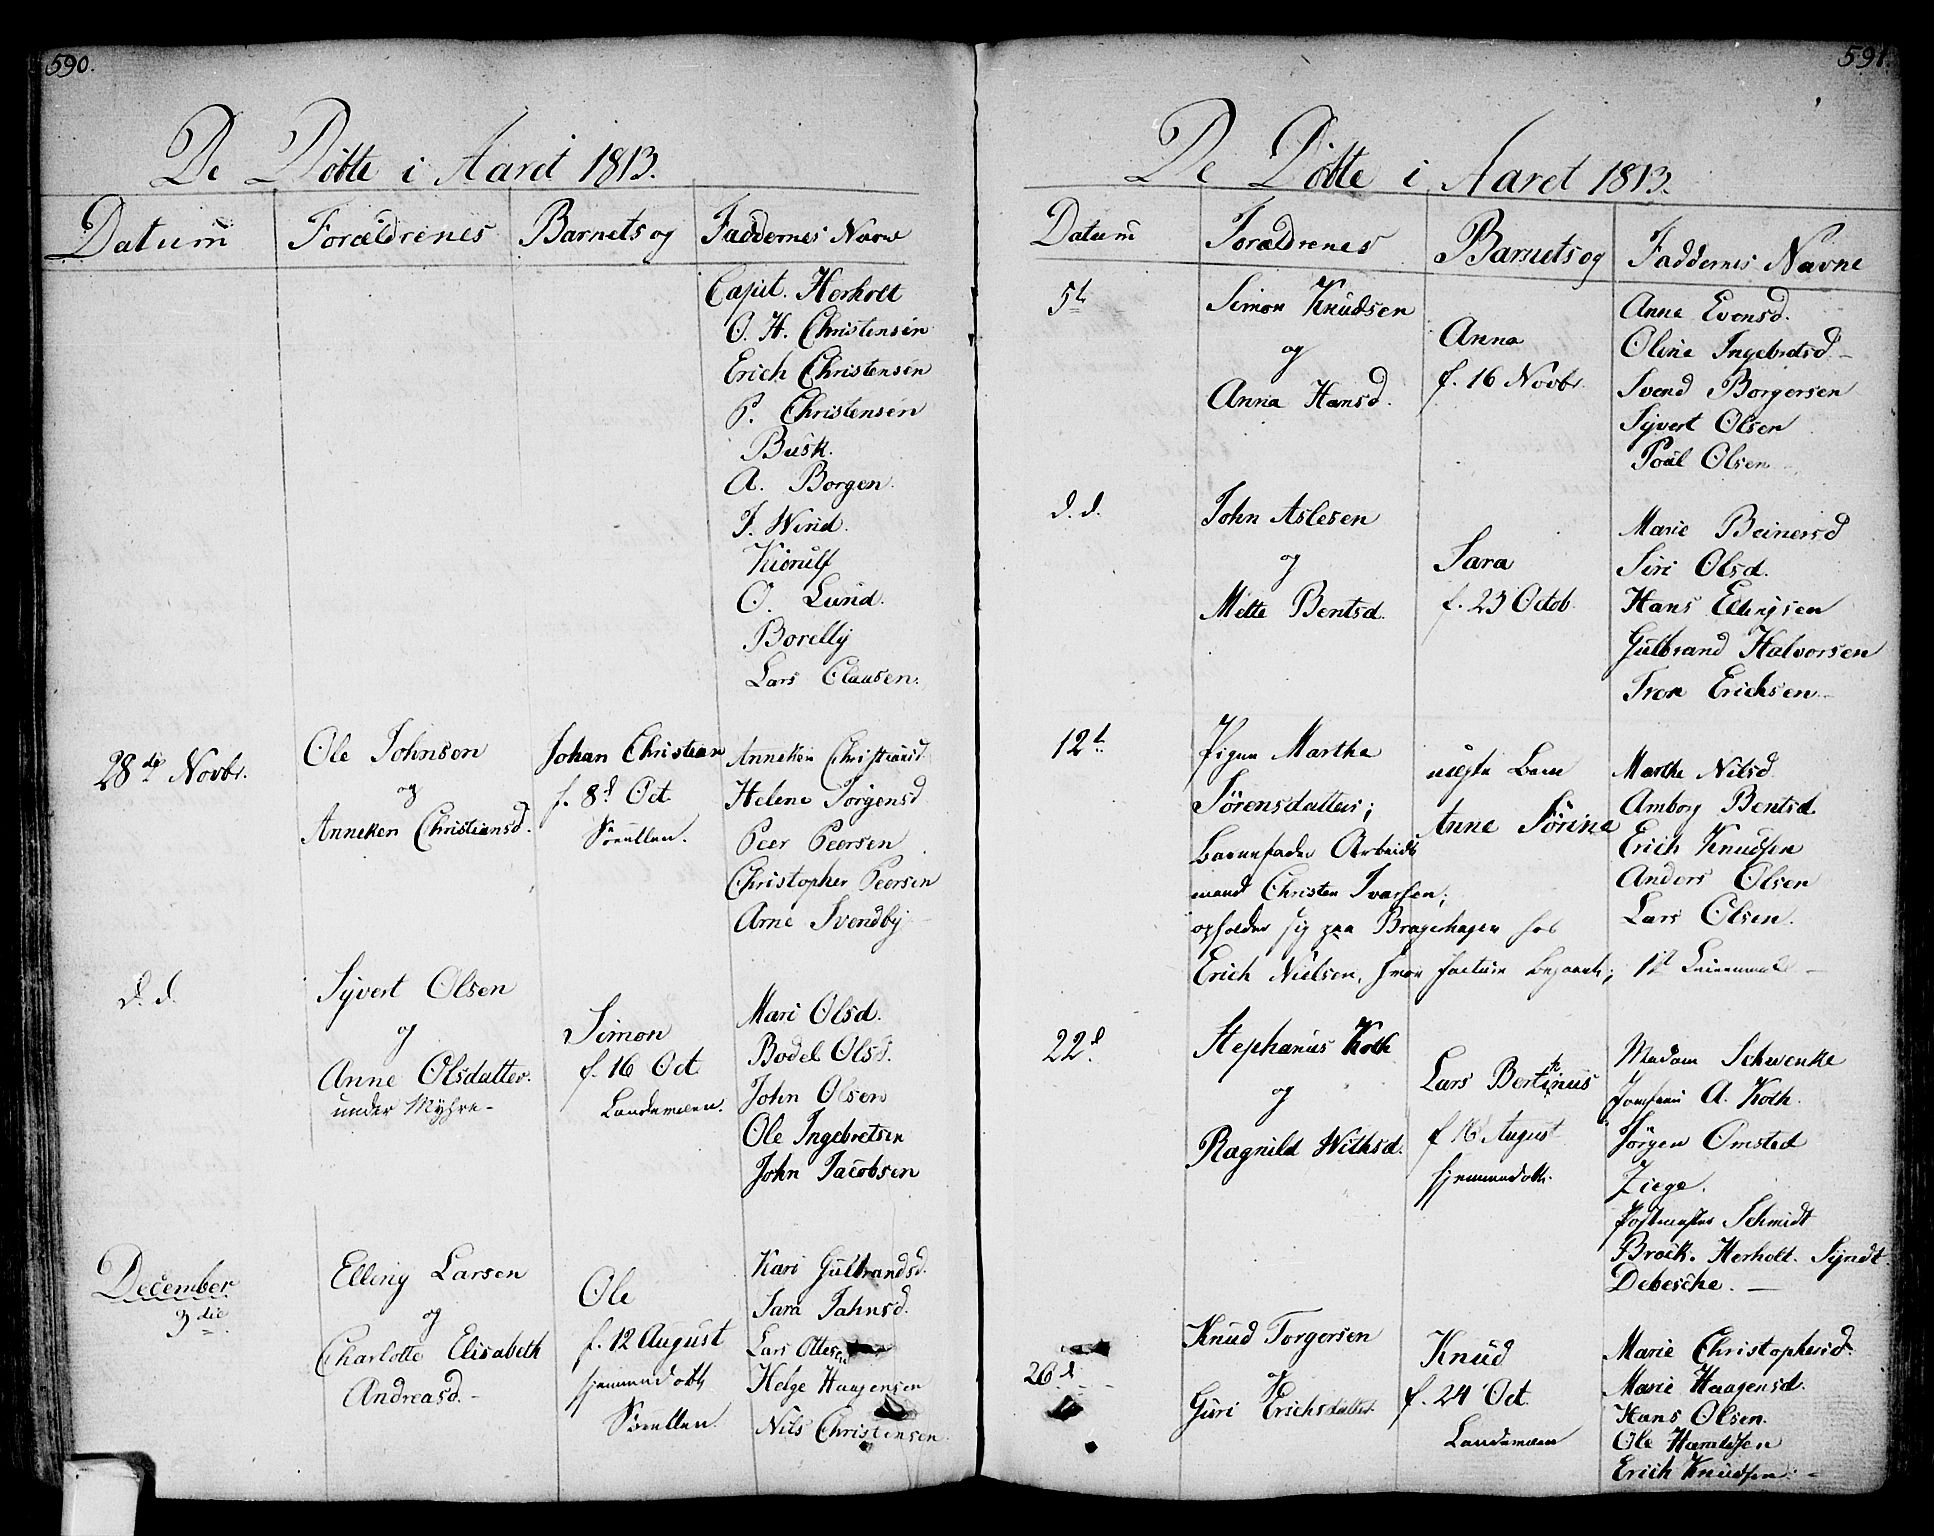 590.
De Döbte i Aaret 1813.
Datum Forældrenes Barnets og Faddernes Navne
Capit. Herholt
O. H. Christensen
Erich Christensen
P. Christensen
Busk.
A. Borgen.
J. Wind.
Kierulf
O. Lund.
Borelly
Lars Clausen.
28de Novbr.
Ole Johnsen
og
Anneken Christiansd.
Johan Christian
f. 8d Oct.
Anneken Christiansd.
Helene Jörgensd
Peer Peersen
Christopher Peersen
Arne Svendby
d. d.
Syvert Olsen
og
Anne Olsdatter.
under Myhre-
Simon
f. 16 Oct
Landemæen.
Mari Olsd.
Bodel Olsd.
John Olsen
Ole Ingebretsen
John Jacobsen
December
3die
Elling Larsen
og
Charlotte Elisabeth
Andreasd.-
Ole
f. 12 August
hjemmedöbt
Kari Gulbrandsd.
Sara Jahnsd.
Lars Ottesen
Helge Haagensen
Nils Christensen.
591.
De Döbte i Aaret 1813.
Datum Forældrenes Barnets og Faddernes Navne
5t
Simon Knudsen
og
Anna Hansd.
Anna
f. 16 Novbr.
Anne Evensd.
Oline Ingebretsd.-
Svend Borgersen
Syvert Olsen
Poul Olsen
d. d.
John Aslesen
og
Mette Bentsd.
Sara
f. 23 Octob.
Marie Beinersd
Siri Olsd.
Hans Ellingsen
Gulbrand Halvorsen
Iver Erichsen
12t
Pigen Marthe
Sörensdatter;
Barnefader Arbeids
mand Christen Ivarsen;
opholder sig paa Bragerhagen hos
Erich Nielsen,
uægte Barn
Anne Sörine
Marthe Nilsd.
Amborg Bentsd.
Erich Knudsen
Anders Olsen
Lars Olsen.
1t Leiermaal -
22d
Stephanus Koth
og
Ragnild Withsd.
Lars Bertinus
f. 16 August
hjemmedöbt.
Madam Schwenke
Jomfrue A. Koth.
Jörgen Omsted
Ziege.
Postmester Schmidt
Brock. Herholt. Syndt.
Debesche. -
26d
Knud Torgersen
og
Guri Erichsdatter.
Knud
f. 24 Oct.
Landemæen
Marie Christophersd.
Marie Haagensd.
Hans Olsen.
Ole Haraldsen
Erich Knudsen.-